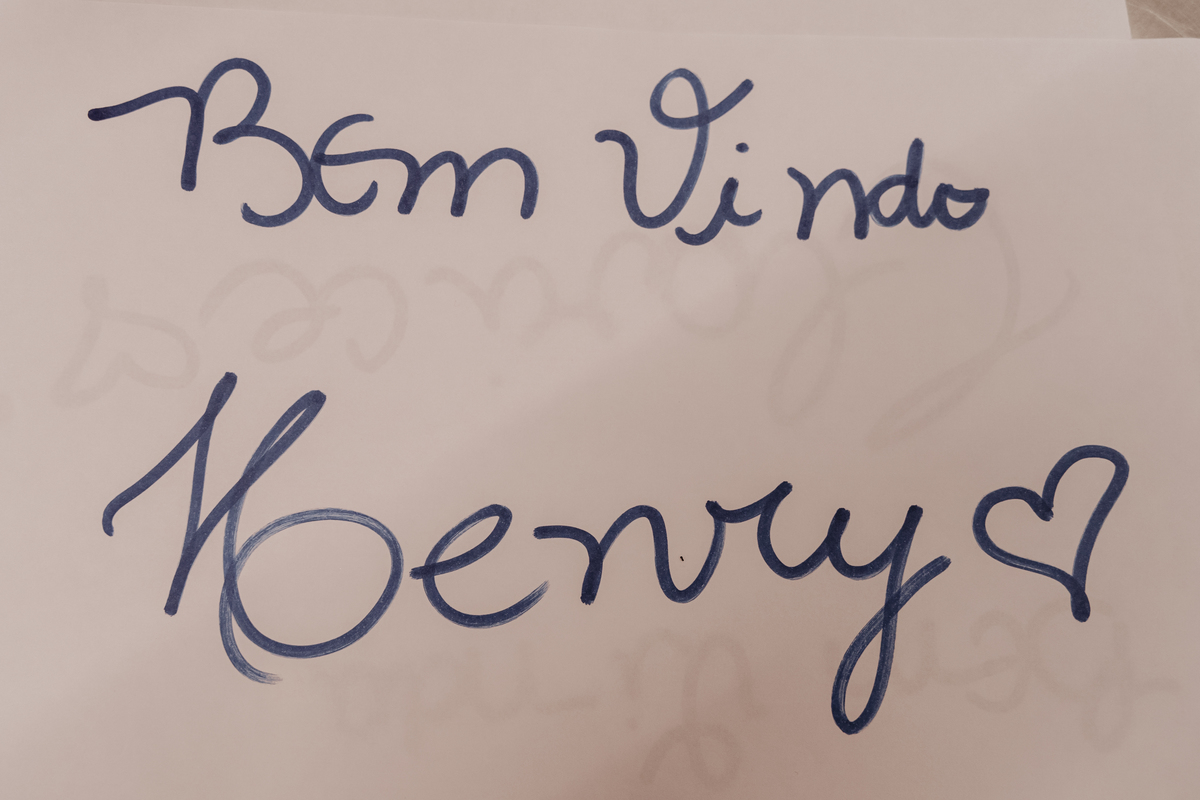 Bem Vindo
Henry♡